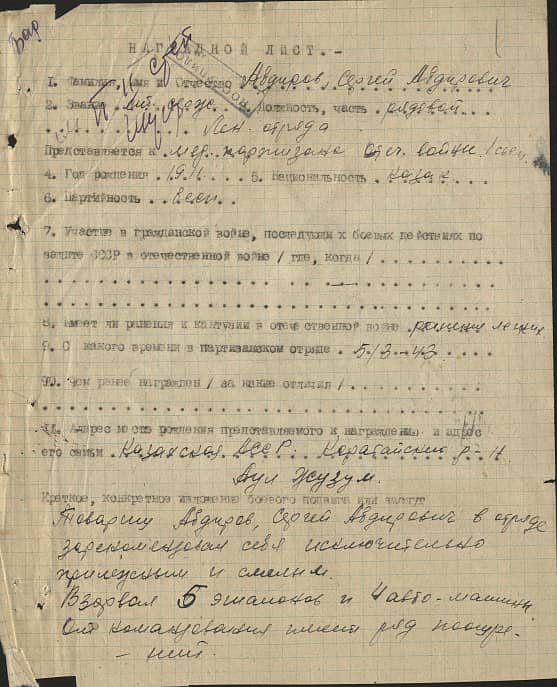 НАГРАДНОЙ ЛИСТ.-
1. Фамилия имя и Отчество Абдиров, Сергей Абдирович
2. Звание Должность, часть рядовой
Лен. отряда
Представляется к мед. партизана отеч. войны
4. Год рождения 1911 5. Национальность казах
6. Партийность
7. Участие в гражданской войне, последующих боевых действиях по
защите СССР в отечественной войне / где, когда /
8. Имеет ли ранения и контузии в отечественной войне
9. С какого времени в партизанском отряде . 5/3-43
10. Чем ранее награжден / за какие отличия /
11. Адрес место рождения представляемого к награждению и адрес
его семьи Казахская ССР. р-н
Аул Жузум.
Краткое, конкретное изложение боевого подвига или заслуг
Товарищ Абдиров, Сергей Абдирович в отряде
зарекомендовал себя исключительно
прилежным и смелым.
Взорвал 5 эшалонов и 4 авто-машины
От командования имеет ряд поощре-
-ний.